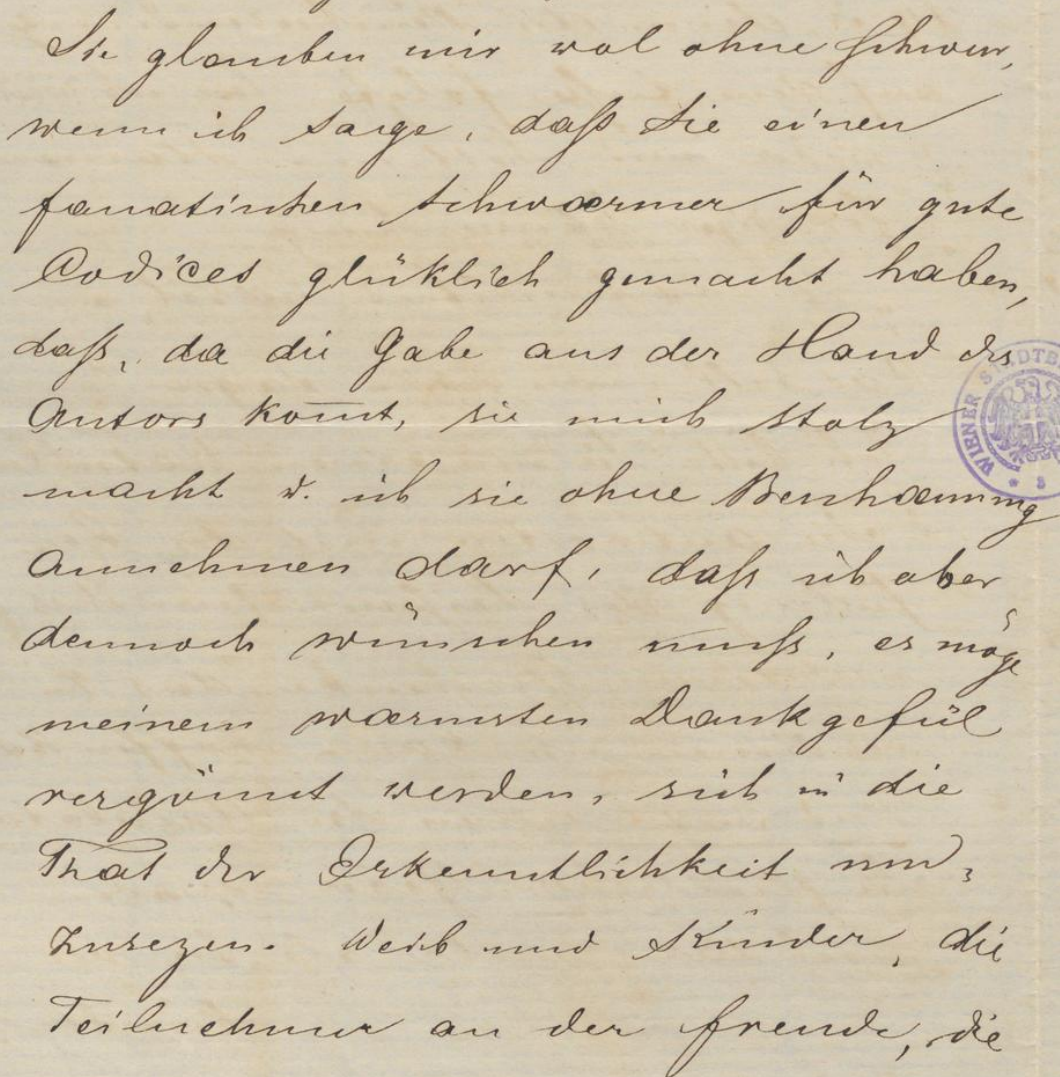 Sie glauben mir wol ohne Schwur,
wenn ich sage, daß Sie einen
fanatischen Schwærmer für gute
Codices glüklich gemacht haben,
daß, da die Gabe aus der Hand des
Autors kom̅t, sie mich stolz
macht u. ich sie ohne Beschæmung
annehmen darf, daß ich aber
dennoch wünschen muß, es möge
meinem wærmsten Dankgefül
vergönnt werden, sich in die
That der Erkenntlichkeit um-
zusezen. Weib und Kinder, die
Teilnehmer an der Freude, die
WIENER STADTB